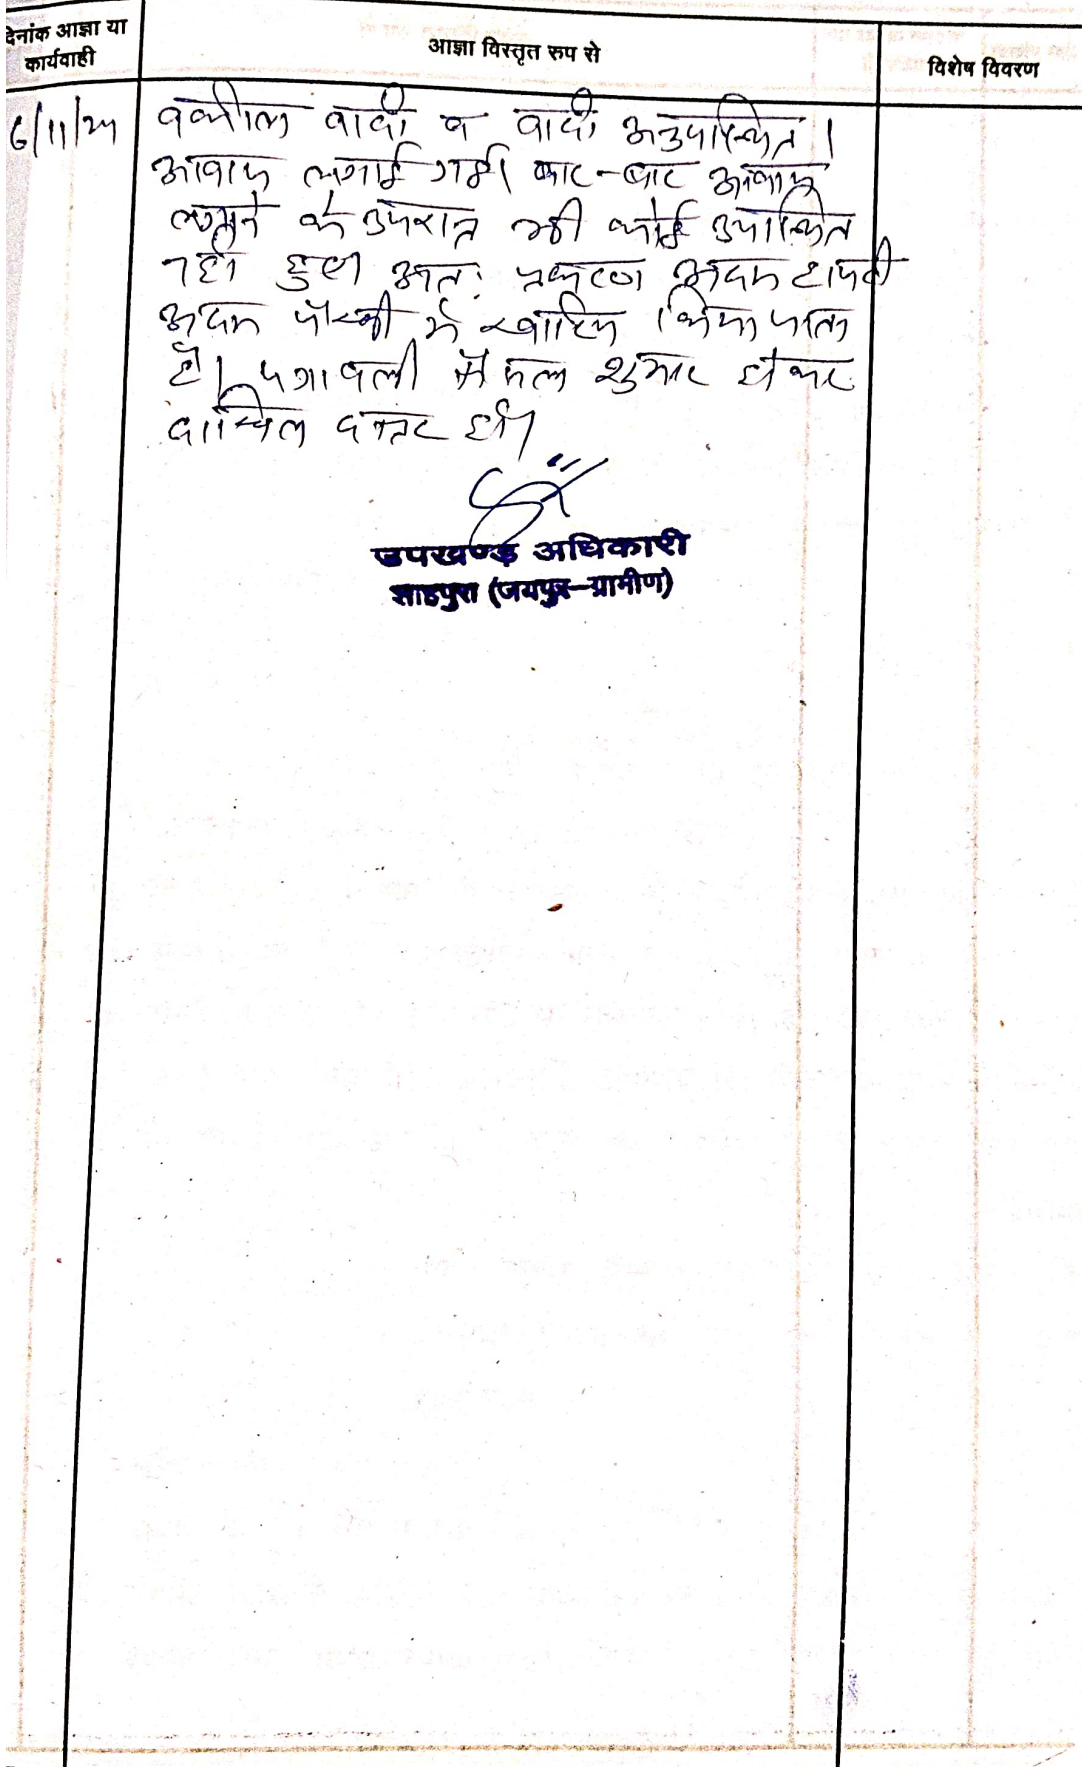 दिनांक आज्ञा या
कार्यवाही
आज्ञा विस्तृत रुप से
विशेष विवरण
6/11/24
वकील वादी व वादी अनुपस्थित।
आवाज लगाई गई। बार-बार आवाज
लगाने के उपरान्त भी कोई उपस्थित
नहीं हुआ अतः प्रकरण अदम हाजरी
अदम पैरवी में खारिज किया जाता
है। पत्रावली फैसल शुमार होकर
दाखिल दफ्तर हो।
उपखण्ड अधिकारी
शाहपुरा (जयपुर-ग्रामीण)